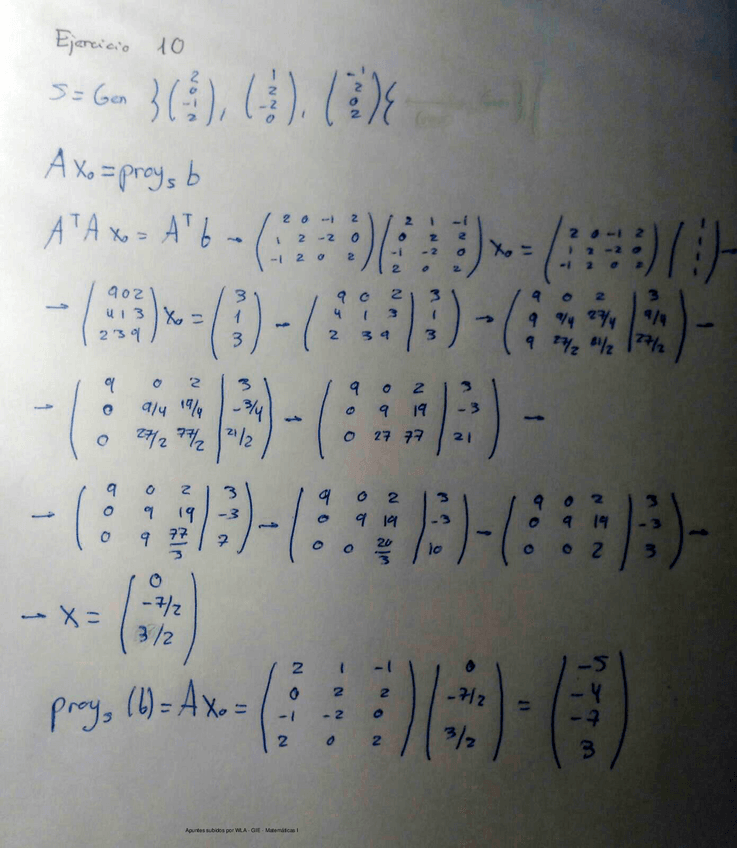 Ejercicio 10
S = Gen }(2 0 -1 2), (1 2 -2 0), (-1 2 0 2){
A x₀ = proyₛ b
AᵀA x₀ = Aᵀ b → (2 0 -1 2 / 1 2 -2 0 / -1 2 0 2)(2 1 -1 / 0 2 2 / -1 -2 0 / 2 0 2) x₀ = (2 0 -1 2 / 1 2 -2 0 / -1 2 0 2)(1 1 1 1) →
→ (9 0 2 / 4 1 3 / 2 3 9) x₀ = (3 / 1 / 3) → (9 0 2 | 3 / 4 1 3 | 1 / 2 3 9 | 3) → (9 0 2 | 3 / 9 9/4 27/4 | 9/4 / 9 27/2 81/2 | 27/2) →
→ (9 0 2 | 3 / 0 9/4 19/4 | -3/4 / 0 27/2 77/2 | 21/2) → (9 0 2 | 3 / 0 9 19 | -3 / 0 27 77 | 21) →
→ (9 0 2 | 3 / 0 9 19 | -3 / 0 9 77/3 | 7) → (9 0 2 | 3 / 0 9 19 | -3 / 0 0 20/3 | 10) → (9 0 2 | 3 / 0 9 19 | -3 / 0 0 2 | 3) →
→ x = (0 / -7/2 / 3/2)
proyₛ (b) = A x₀ = (2 1 -1 / 0 2 2 / -1 -2 0 / 2 0 2)(0 / -7/2 / 3/2) = (-5 / -4 / -7 / 3)
Apuntes subidos por WLA - GIE - Matemáticas I